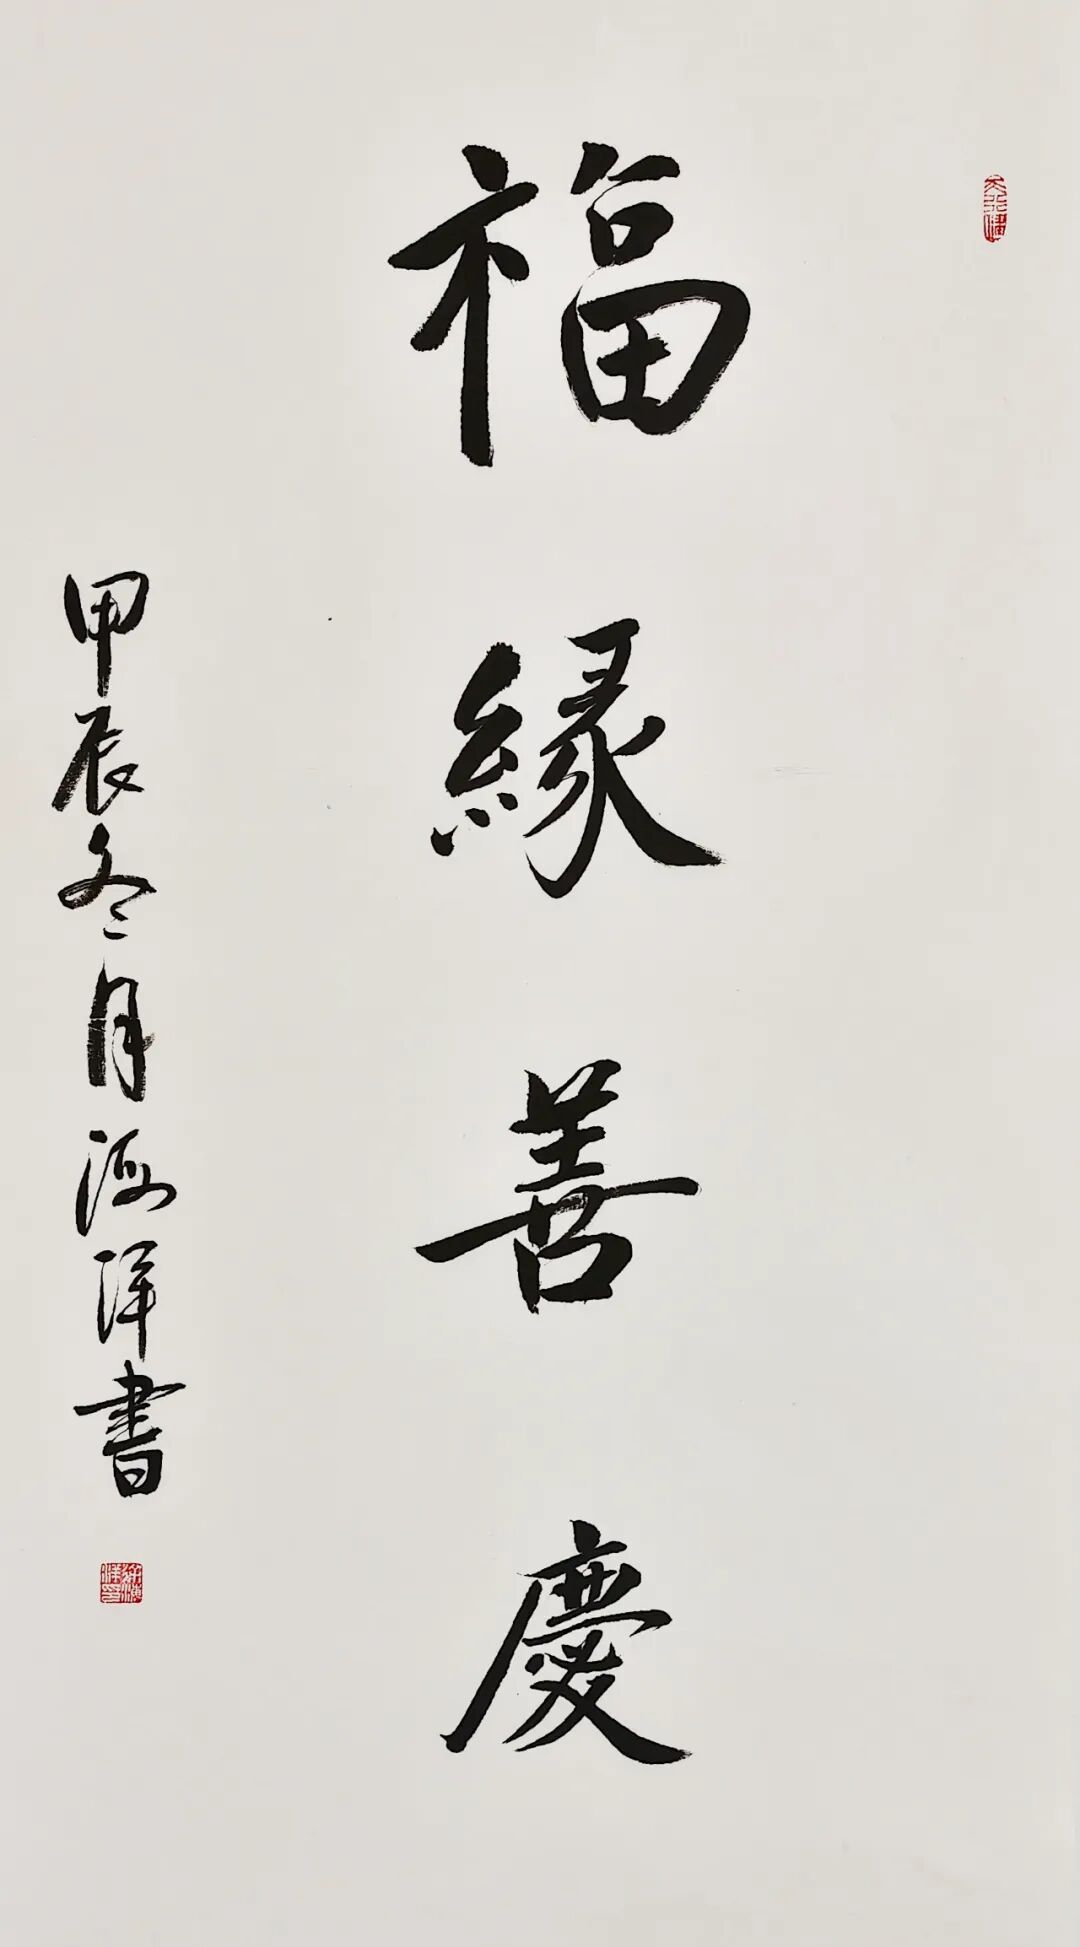 福緣善慶
甲辰冬月海洋書